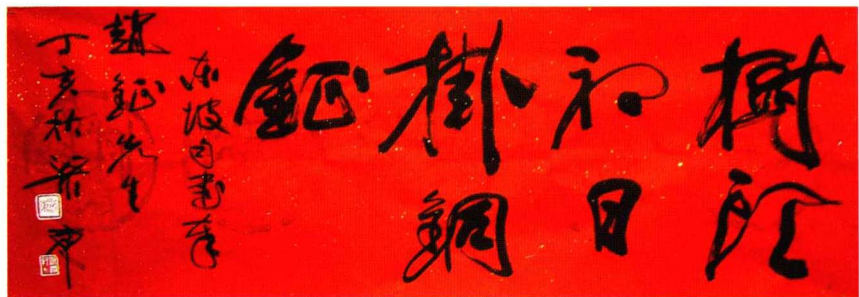 樹頭
初日
掛銅
鉦
東坡句書奉
趙鉦先生
丁亥秋